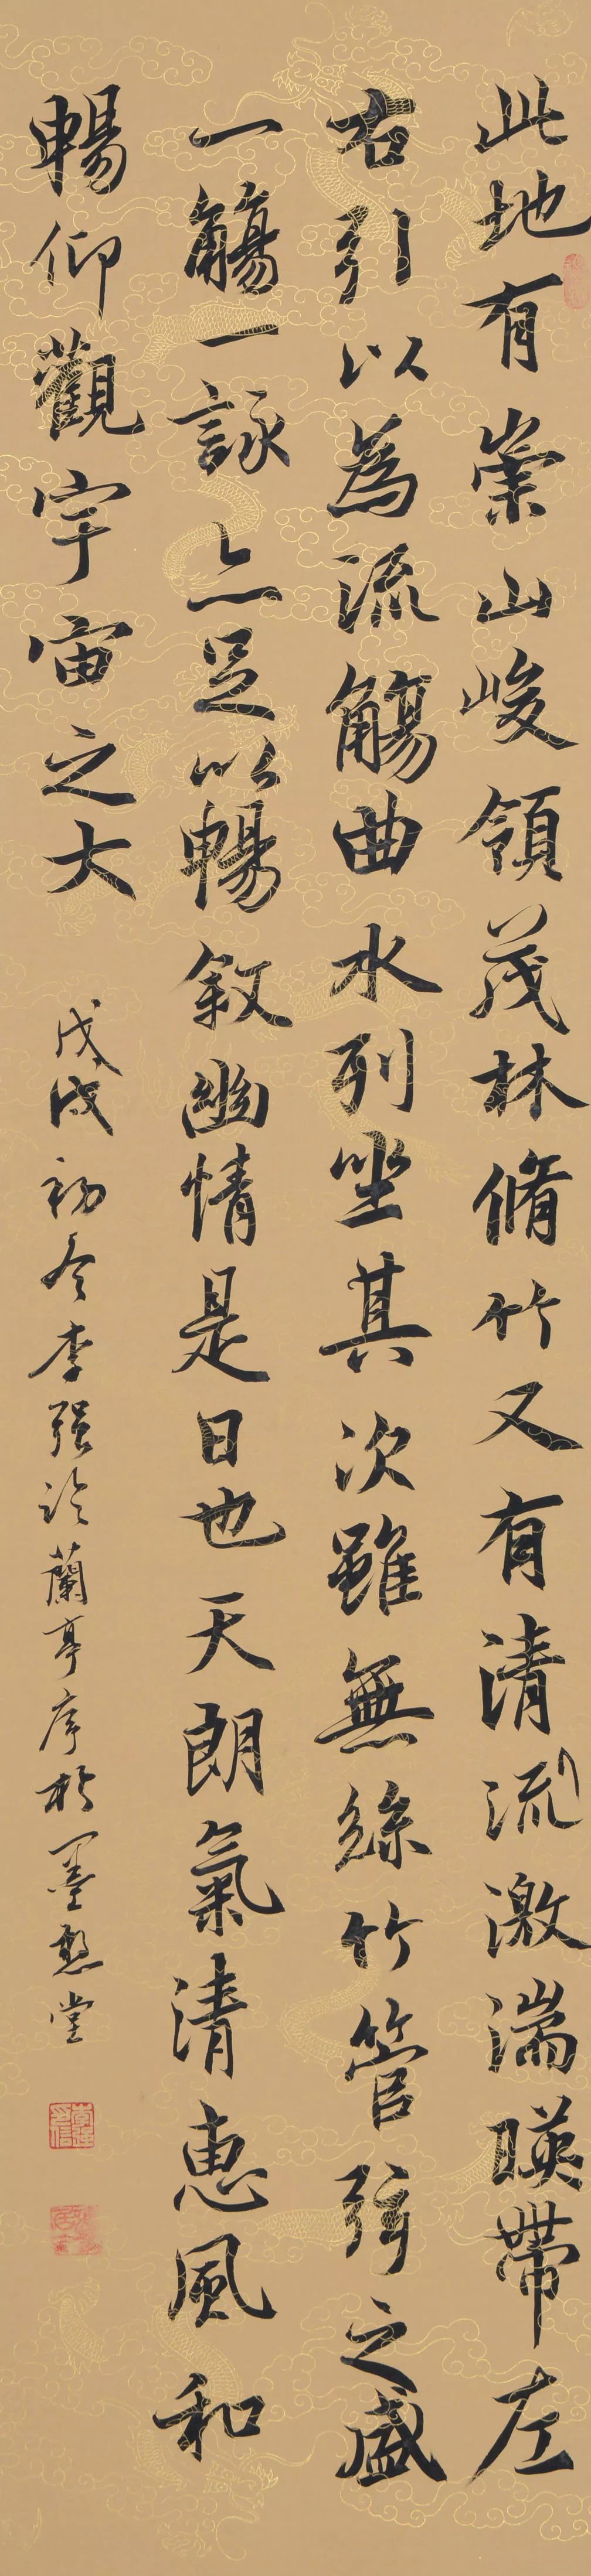 此地有崇山峻領茂林脩竹又有清流激湍暎帶左
右引以為流觴曲水列坐其次雖無絲竹管弦之盛
一觴一詠亦足以暢敘幽情是日也天朗氣清惠風和
暢仰觀宇宙之大
戊戌初冬李強臨蘭亭序於墨憨堂